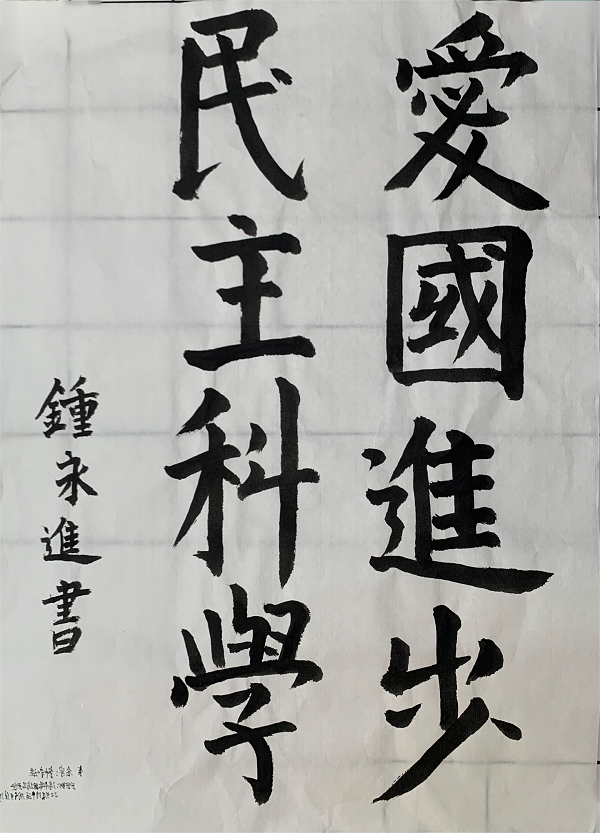 愛國進步
民主科學
鍾永進書